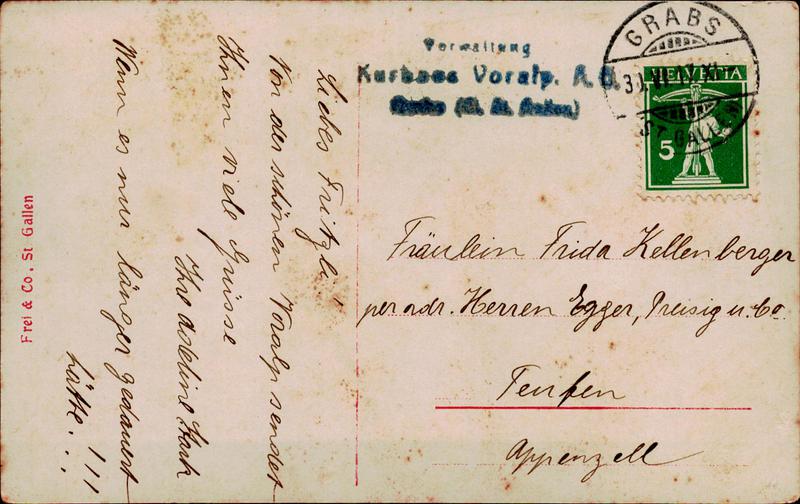 Liebes Fritzli!
Von der schönen Voralp sendet
Ihnen viele Grüsse
Ihre Adeline
Wann es nur länger gedauert
hätte...!!!
Frei & Co., St Gallen
Verwaltung
Kurhaus Voralp. A. G.
Grabs (Kt. St. Gallen)
GRABS
ST. GALLEN
HELVETIA
5
Fräulein Frida Kellenberger
per adr. Herren Egger, Preisig u. Co
Teufen
Appenzell